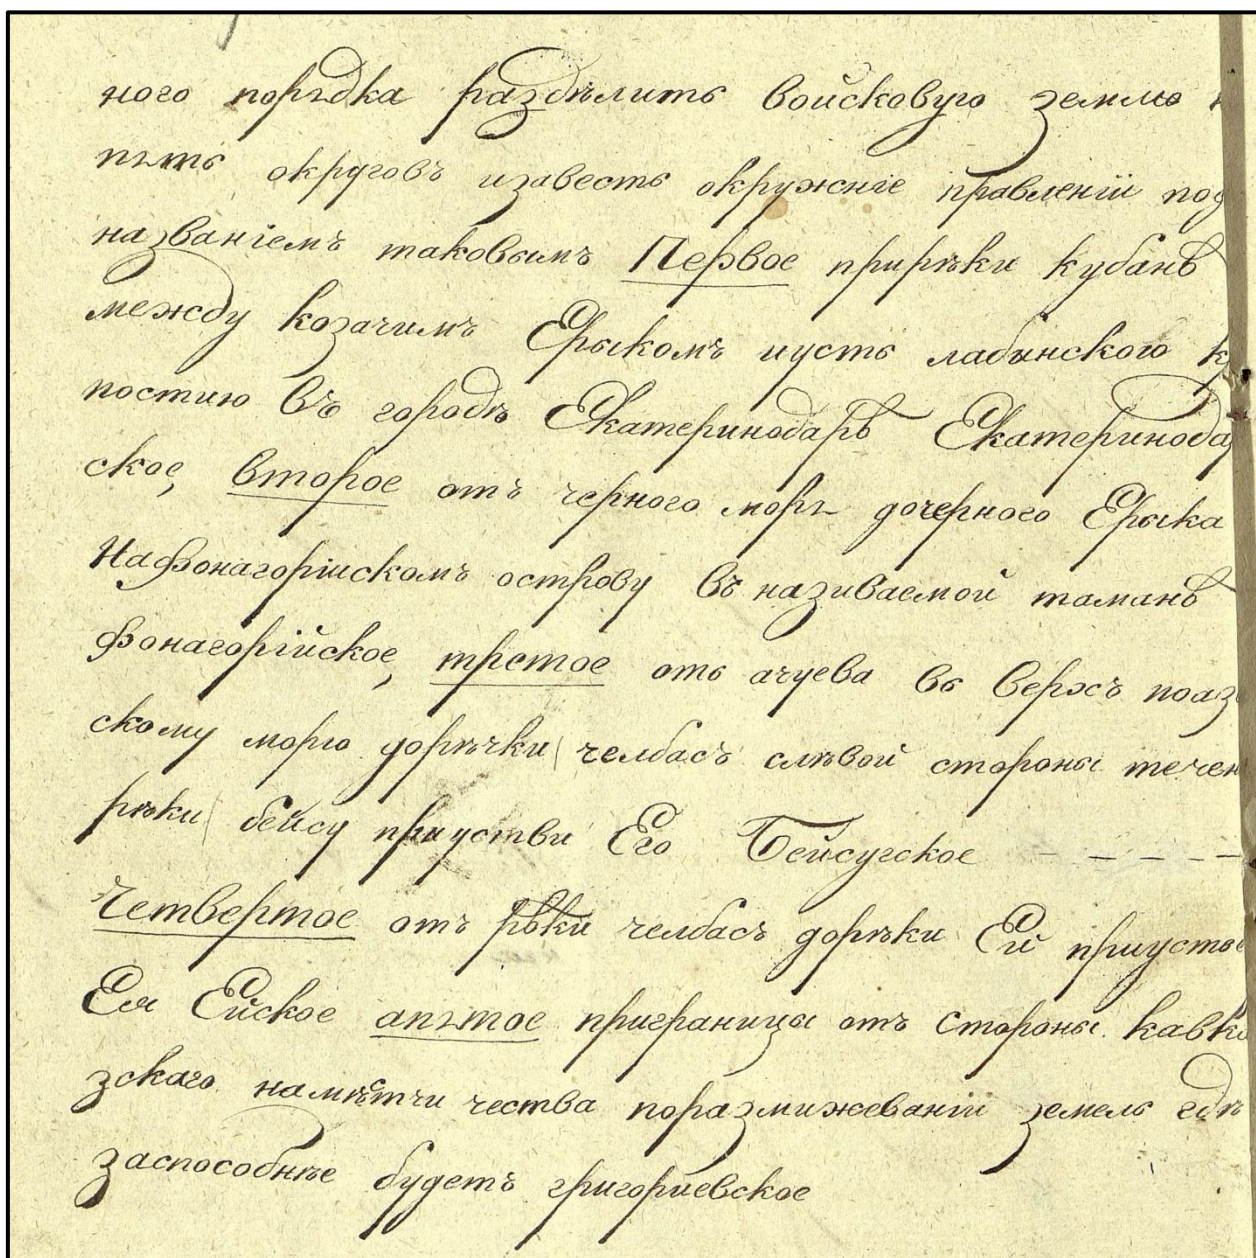 ного порядка раздѣлить войсковую землю н
пять округовъ изавесть окружніе правленіи под
названіемъ таковымъ Первое прирѣки кубанѣ
между козачимъ Ерыкомъ иусть лабинского к
постию въ городѣ Екатеринодарѣ Екатеринода
ское, второе отъ черного моря дочерного Ерыка
Нафонагорійскомъ острову въ називаемой таманѣ
Фонагорійское, третое отъ ачуева въ верхъ поаз
скому морю дорѣчки челбасъ слѣвой стороны течен
рѣки бейсу приустьи Его Бейсугское - - - -
Четвертое отъ рѣки челбасъ дорѣки Еи приусть
Ея Ейское апятое приграницы отъ стороны кавка
зскаго намѣстничества поразмижеваніи земель гдѣ
заспособнѣе будетъ григориевское